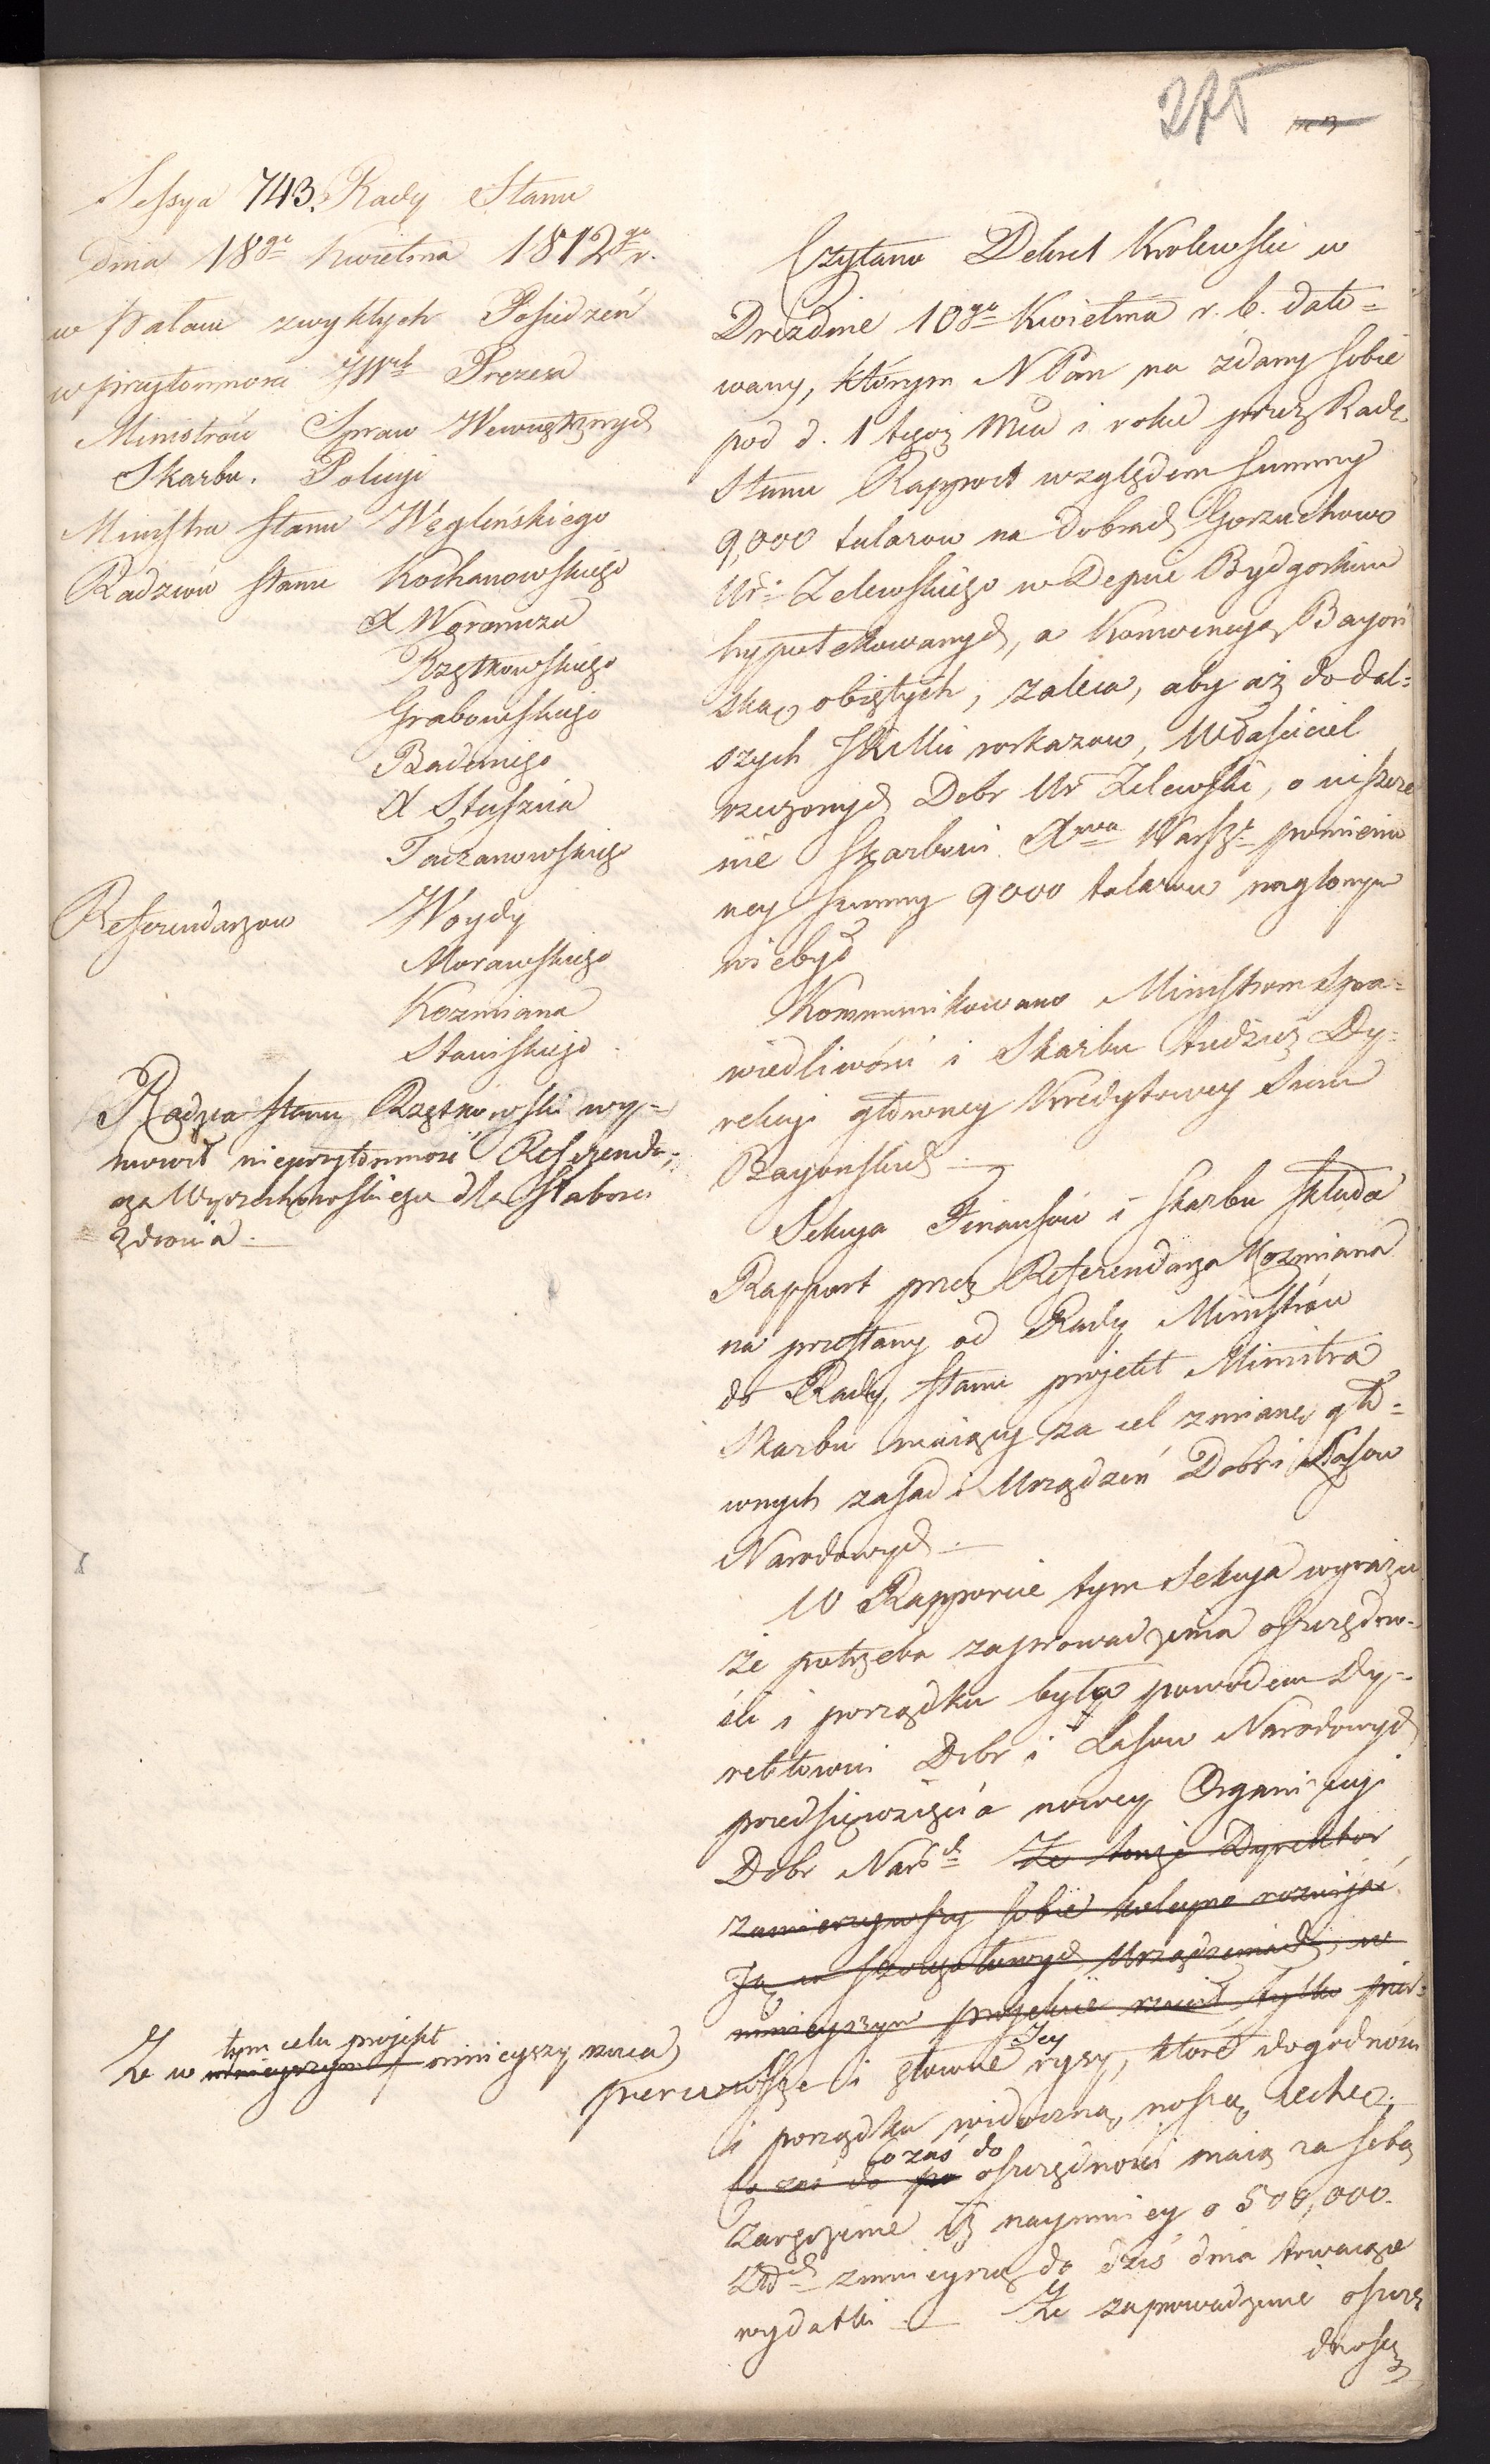 275
Sessya 743. Rady Stanu
dnia 18go Kwietnia 1812go r.
w Pałacu zwykłych Posiedzeń
w przytomnosci JWch Prezesa
Ministrów Spraw Wewnętrznych
Skarbu. Policyi
Ministra Stanu Węgleńskiego
Radzców Stanu Kochanowskiego
X Woronicza
Rzętkowskiego
Grabowskiego
Badeniego
X Staszica
Taczanowskiego
Referendarzow Woydy
Morawskiego
Kozmiana
Stawiskiego
Radzca Stanu Rzętkowski wy-
mowił nieprzytomność Referenda-
rza Wyczechowskiego dla słabosci
zdrowia.
Czytano Dekret Krolewski w
Dreźdnie 10go Kwietnia r. b. dato=
wany, którym N Pan na zdany sobie
pod d. 1 tegoż Mca i roku przez Radę
Stanu Rapport względem summy
9,000 talarow na dobrach Gorzuchowo
Ur: Zelewskiego w Depcie Bydgoskim
hypotekowanych, a Konwencyą Bayoń
ską obiętych, zaleca, aby aż do dal=
szych JKMci roskazow, Właściciel
rzeczonych Dobr Ur Zelewski, o uiszcze
nie Skarbowi Xwa Warszo pomienio
ney summy 9000 talarow naglonym
niebył
Kommunikowano Ministrom Spra=
wiedliwości i Skarbu tudzież Dy=
rekcyi główney Kredytowey Summ
Bayonskich
Sekcya Finansów i Skarbu składa
Rapport przez Referendarza Kozmiana
na przesłany od Rady Ministrów
do Rady Stanu projekt Ministra
Skarbu maiący za cel zmianę głó=
wnych zasad i Urządzeń Dobr i Lasow
Narodowych
W Rapporcie tym Sekcya wyraża
że potrzeba zaprowadzenia oszczędno-
ści i porządku była powodem Dy-
rektowi Dobr i Lasow Narodowych
przedsięwzięcia nowey Organizacyi
Dobr Narodch Ze tenże Dyrektor
zamierzywszy sobie kolejno rozwijać
Ją w szczegułowych Urządzeniach, w
ninieyszym projekcie rzucił tylko pier=
Ze w tym celu projekt ninieyszy rzuca
pierwsze i główne Jey rysy, które dogodności
i porządku widoczną noszą cechę;
Co zaś do
oszczędności maią za sobą
zaręczenie iż naymniey o 500,000.
Złch zmnieyszą do dziś dnia trwaiące
wydatki. — Ze zaprowadzenie oszczę
dnosci